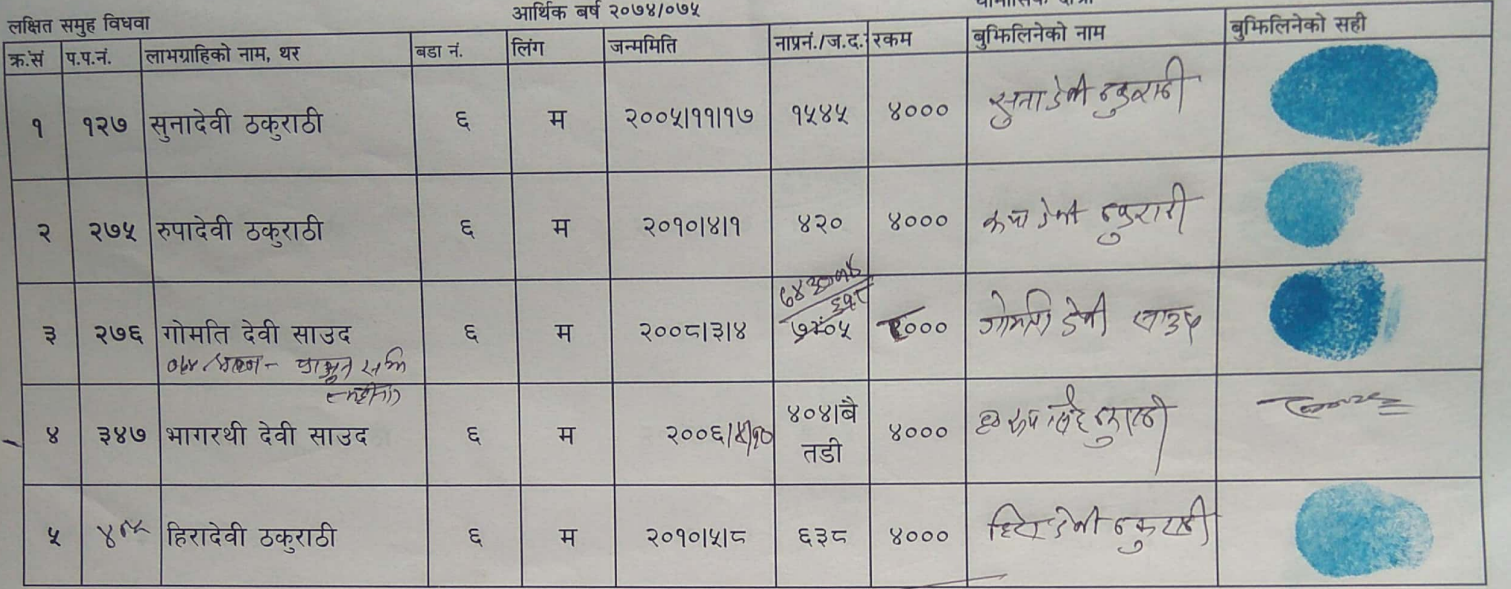 आर्थिक बर्ष २०७४/०७५
लक्षित समुह विधवा
क्र.सं प.प.नं. लाभग्राहिको नाम, थर बडा नं. लिंग जन्ममिति नाप्रनं./ज.द. रकम बुझिलिनेको नाम बुझिलिनेको सही
१ १२७ सुनादेवी ठकुराठी ६ म २००५|११|१७ १५४५ ४००० सुना देवी ठकुराठी
२ २७५ रुपादेवी ठकुराठी ६ म २०१०|४|१ ४२० ४००० रूपा देवी ठकुराठी
३ २७६ गोमति देवी साउद ६ म २००८|३|४ गोमती देवी साउद
४ ३४७ भागरथी देवी साउद ६ म २००६|४|१० ४०४|बै ४०००
तडी
५ हिरादेवी ठकुराठी ६ म २०१०|५|८ ६३८ ४००० हिरा देवी ठकुराठी